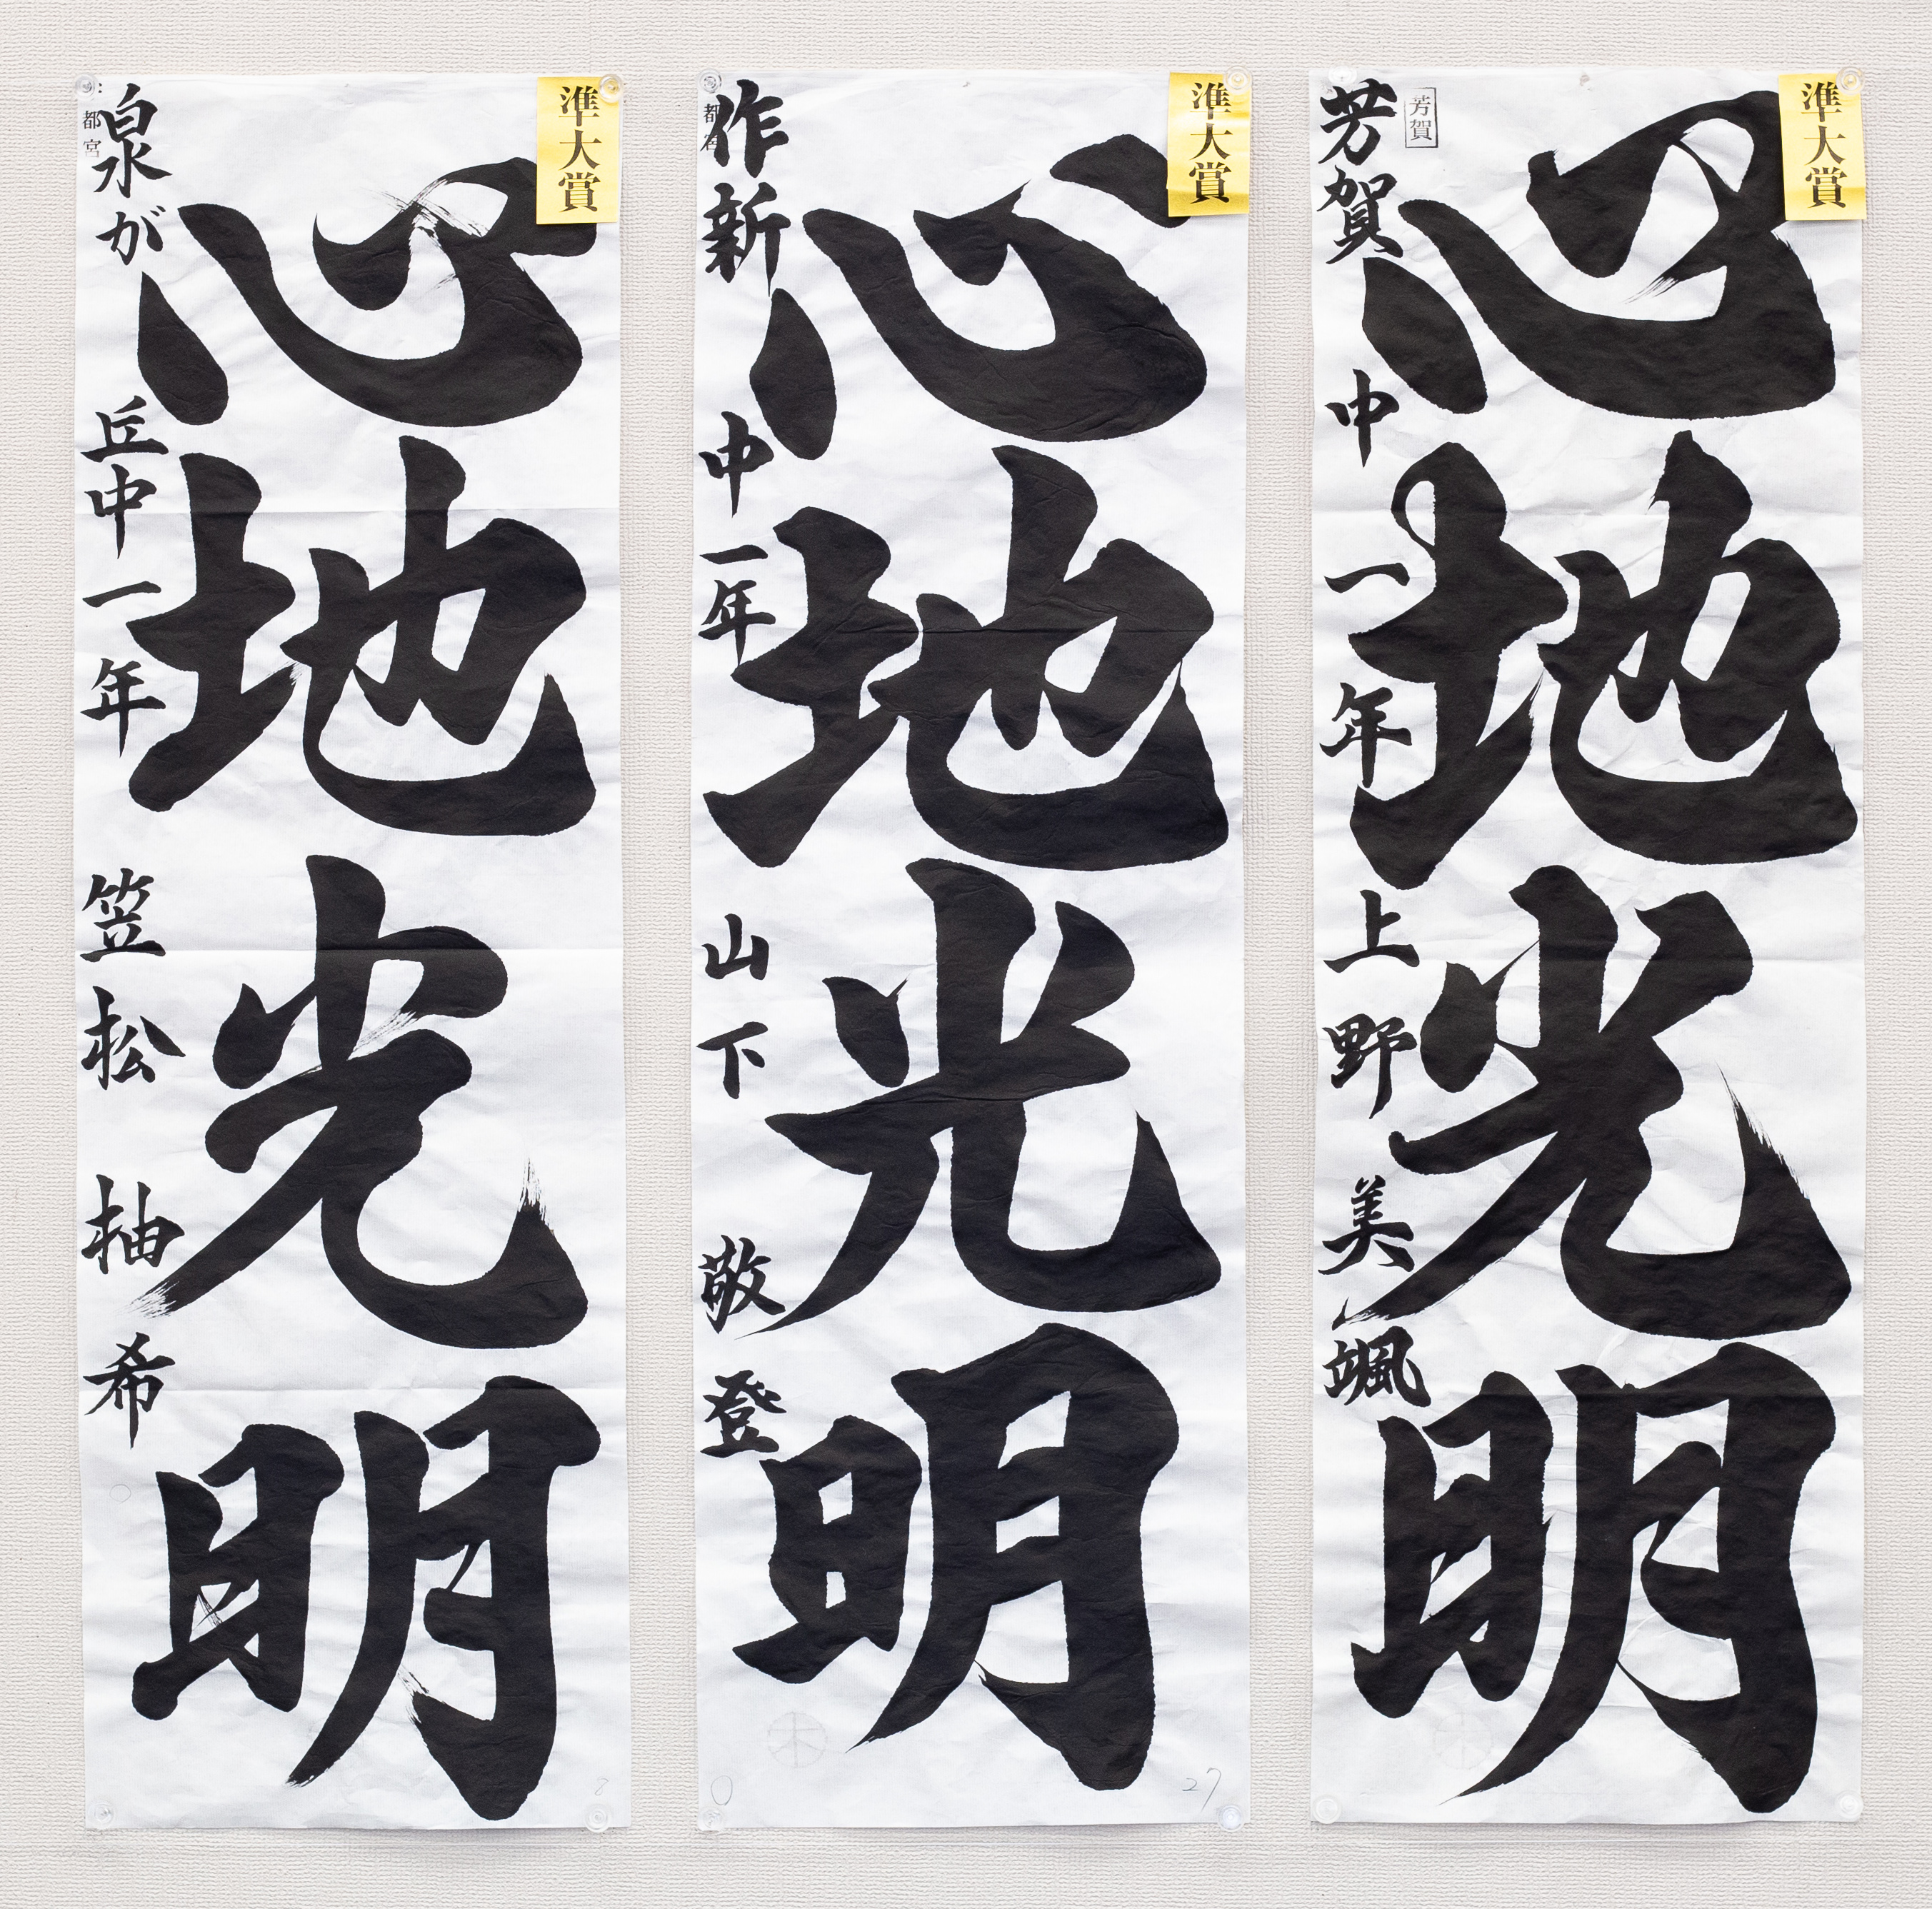 準大賞
芳賀
心地光明
芳賀中一年 上野美颯
準大賞
都宮
心地光明
作新中一年 山下敬登
準大賞
都宮
心地光明
泉が丘中一年 笠松柚希
27